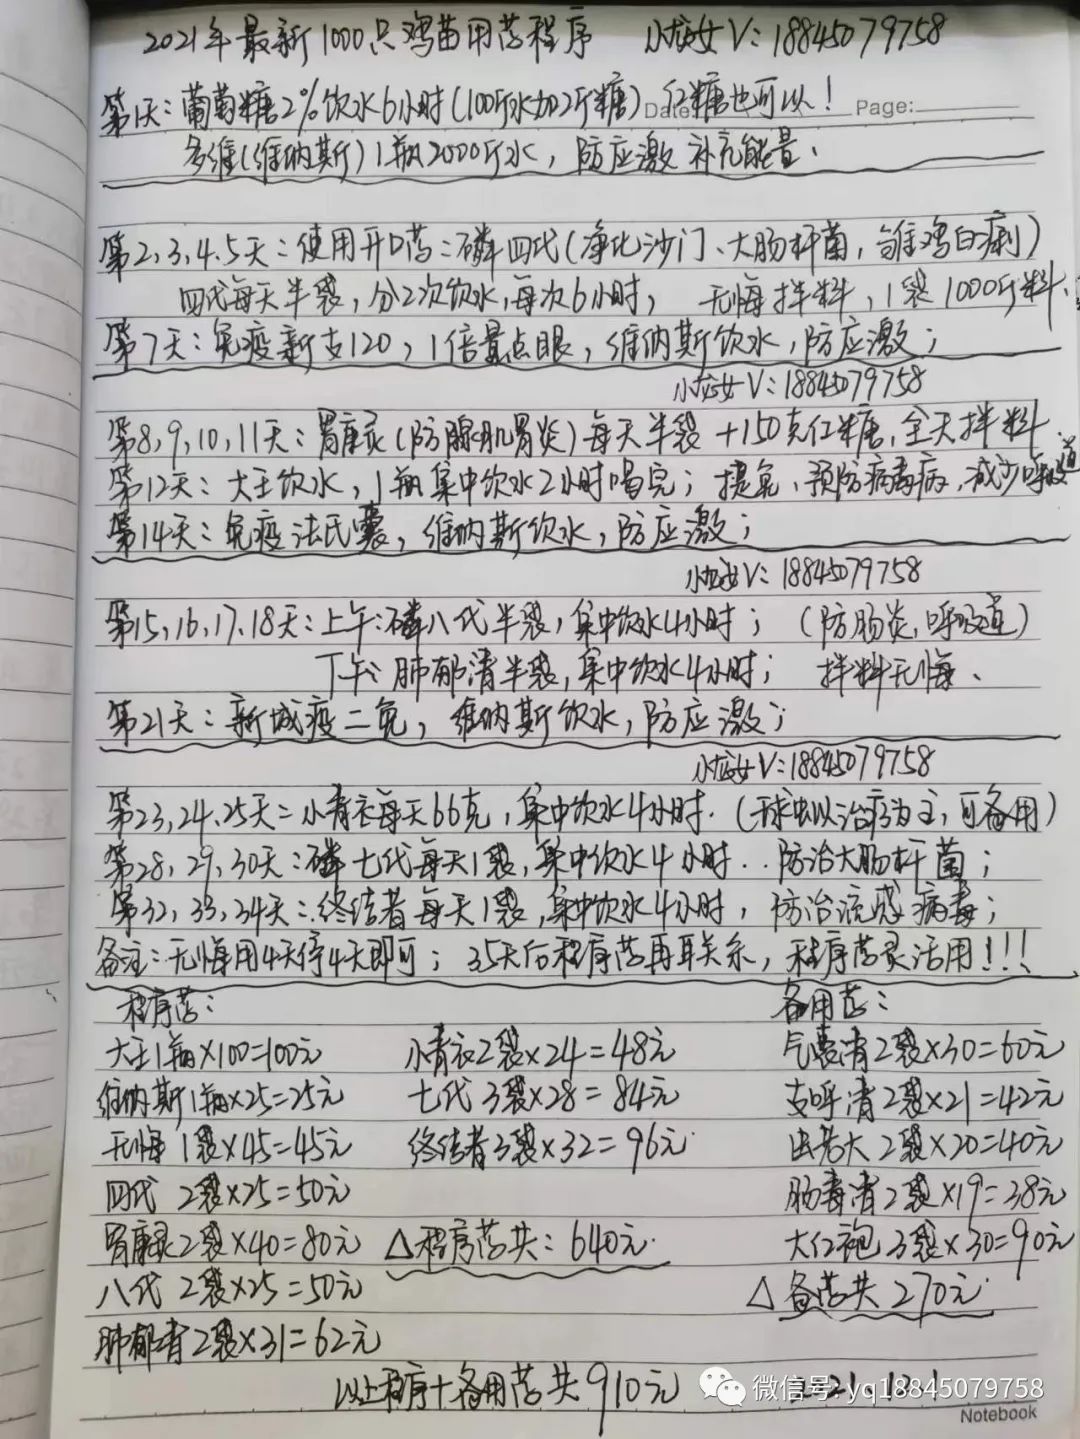 2021年最新1000只鸡苗用药程序 小龙女V:18845079758
Date: Page:
第1天:葡萄糖2%饮水6小时(100斤水加2斤糖) 红糖也可以!
多维(维纳斯)1瓶2000斤水,防应激 补充能量.
第2,3,4,5天:使用开口药:磷四代(净化沙门、大肠杆菌,雏鸡白痢)
四代每天半袋,分2次饮水,每次6小时, 无悔拌料,1袋1000斤料、
第7天:免疫新支120,1倍量点眼,维纳斯饮水,防应激;
小龙女V:18845079758
第8,9,10,11天:胃康灵(防腺肌胃炎)每天半袋+150克红糖,全天拌料.
第12天:大王饮水,1瓶集中饮水2小时喝完;提免、预防病毒病,减少呼吸道
第14天:免疫法氏囊,维纳斯饮水,防应激;
小龙女V:18845079758
第15,16,17,18天:上午:磷八代半袋,集中饮水4小时; (防肠炎,呼吸道)
下午:肺郁清半袋,集中饮水4小时; 拌料无悔、
第21天:新城疫二免,维纳斯饮水,防应激;
小龙女V:18845079758
第23,24,25天:小青衣每天66克,集中饮水4小时.(球虫以治疗为主,可备用)
第28,29,30天:磷七代每天1袋,集中饮水4小时..防治大肠杆菌;
第32,33,34天:终结者每天1袋,集中饮水4小时,防治流感病毒;
备注:无悔用4天停4天即可;35天后程序药再联系,程序药灵活用!!!
程序药: 备用药:
大王1瓶×100=100元 小青衣2袋×24=48元 气囊清2袋×30=60元
维纳斯1瓶×25=25元 七代3袋×28=84元 支呼清2袋×21=42元
无悔1袋×45=45元 终结者3袋×32=96元 虫老大2袋×20=40元
四代 2袋×25=50元 肠毒清2袋×19=38元
胃康灵2袋×40=80元 △程序药共:640元. 大红袍3袋×30=90元
八代 2袋×25=50元 △备药共270元.
肺郁清2袋×31=62元
以上程序+备用药共910元 2021.12.1
微信号:yq18845079758
Notebook